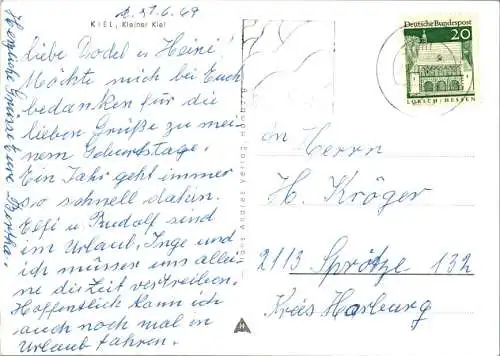 d. 27.6.69
KIEL, Kleiner Kiel
Liebe Dodel u. Heini!
Möchte mich bei Euch
bedanken für die
lieben Grüße zu mei-
nem Geburtstage.
Ein Jahr geht immer
so schnell dahin.
Elfi u. Rudolf sind
im Urlaub, Inge und
ich müssen uns allei-
ne die Zeit vertreiben.
Hoffentlich kann ich
auch noch mal in
Urlaub fahren.
Herzliche Grüsse Eure Bertha.
Hans Andres Verlag, Hamburg
Deutsche Bundespost
20
LORSCH / HESSEN
An Herrn
H. Kröger
2113 Sprötze 132
Kreis Harburg